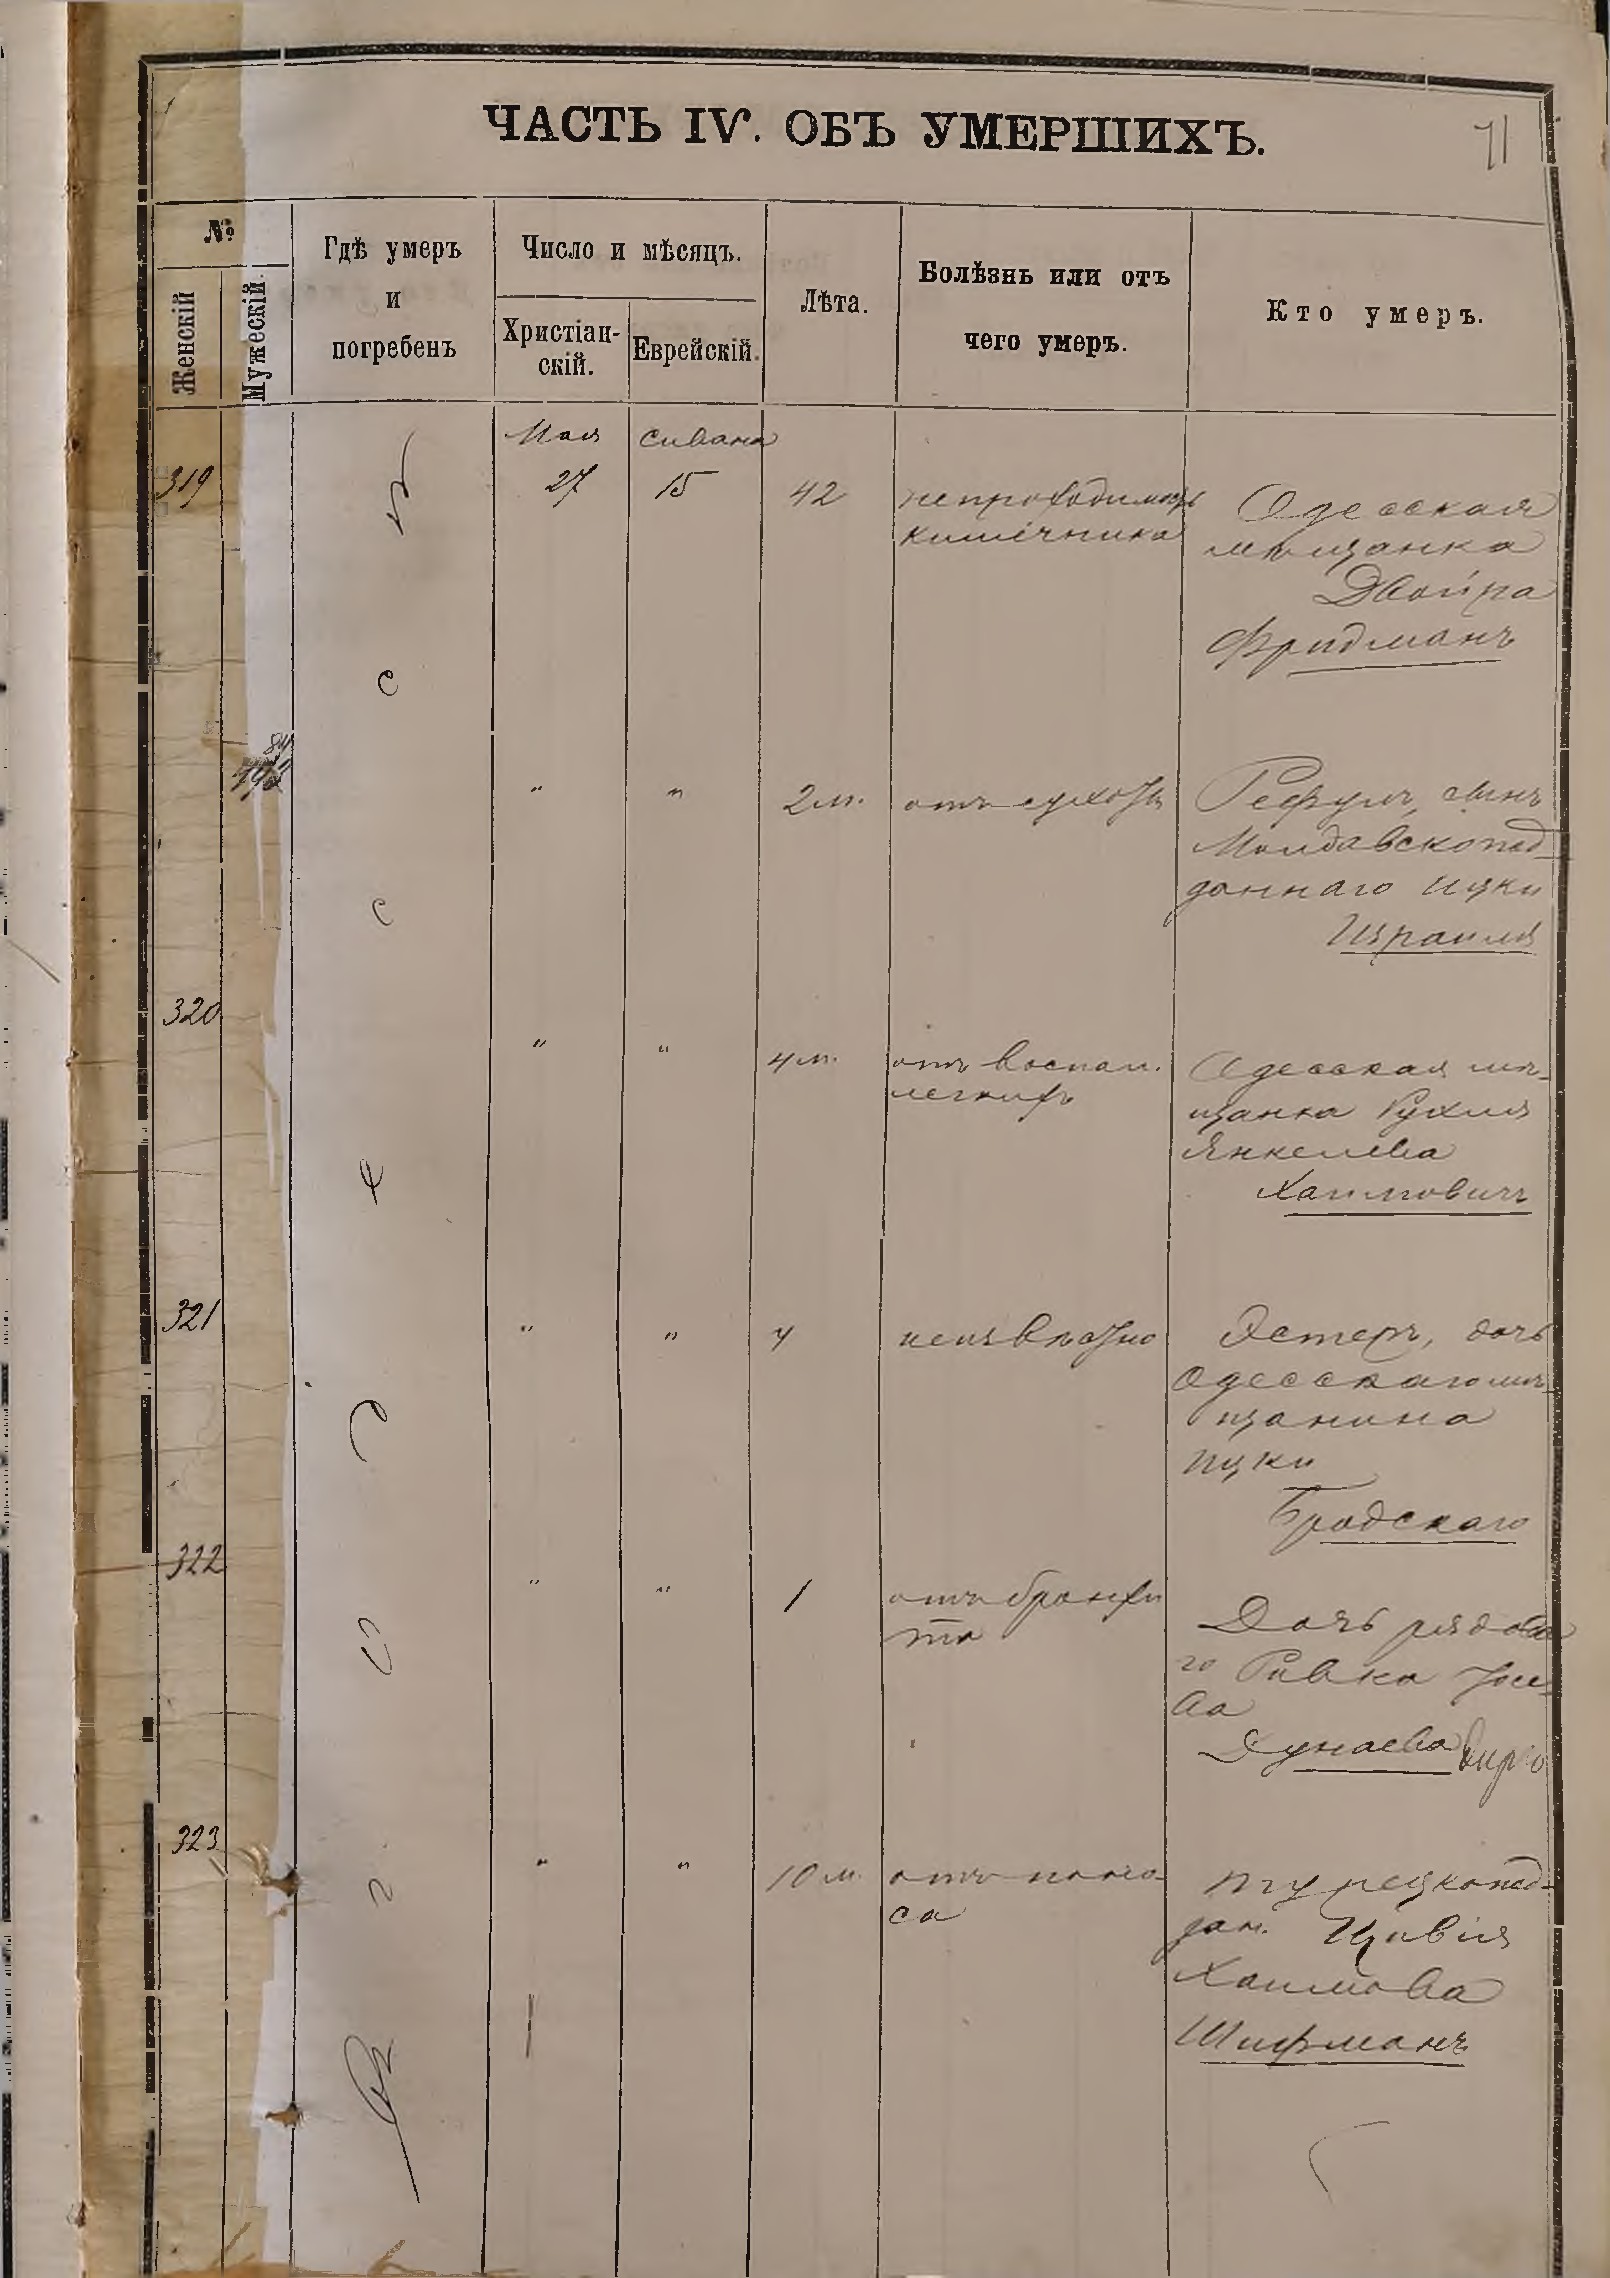 ЧАСТЬ IV. ОБЪ УМЕРШИХЪ.
71
№
Женскій
Мужескій.
Гдѣ умеръ
и
погребенъ
Число и мѣсяцъ.
Христіан-
скій.
Еврейскій.
Лѣта.
Болѣзнь или отъ
чего умеръ.
Кто умеръ.
Мая
Сивана
319
27
15
42
непроходимость
кишечника
Одесская
мѣщанка
Двойра
Фридманъ
"
"
2 м.
отъ сухоты
сынъ
Молдавскопод-
даннаго Ицки
Израиля
320
"
"
4 м.
отъ воспал.
легкихъ
Одесская мѣ-
щанка Рухля
Янкелева
Хаимовичъ
321
"
"
4
неизвѣстно
Эстеръ, дочь
Одесскаго мѣ-
щанина
Ицки
Бродскаго
322
"
"
1
отъ бронхи
та
Дочь рядова
го Ривка
ва
Дунаева
323
"
"
10 м.
отъ поно-
са
Турецкопод-
дан. Цивія
Хаимова
Шифманъ